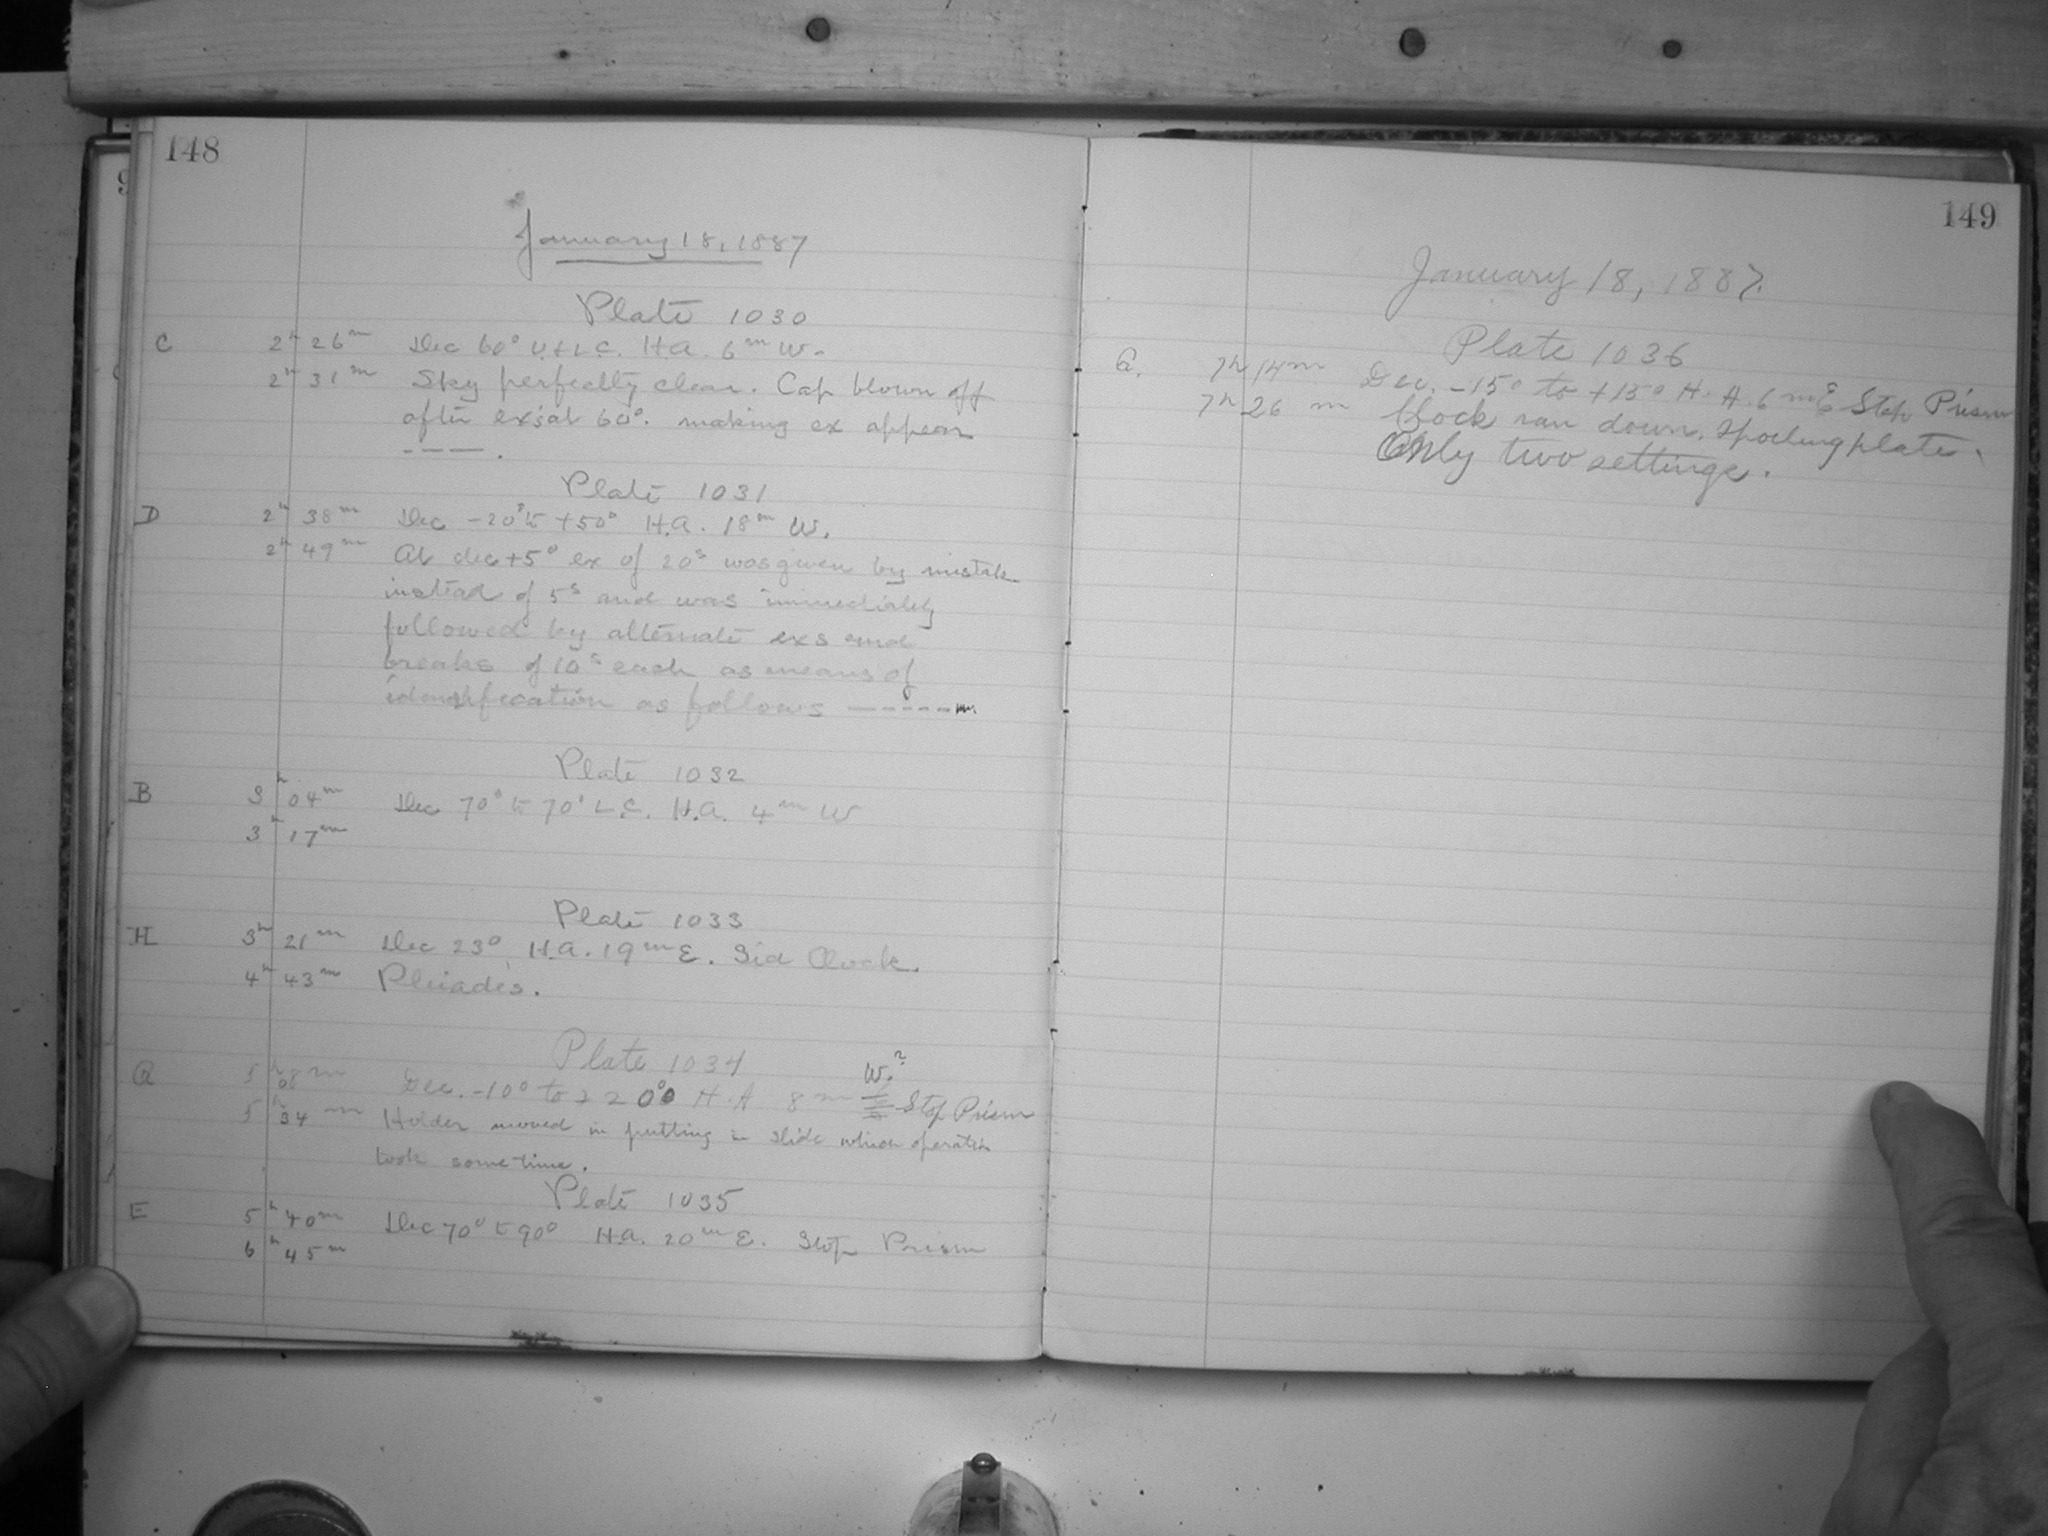 148
January 18, 1887
Plate 1030
C 2h 26m Dec 60° U. & L.C. H.A. 6m W.
2h 31m Sky perfectly clear. Cap blown off
after ex's at 60°. making ex appear
– – — .
Plate 1031
D 2h 38m Dec -20° to +50° H.A. 18m W.
2h 49m At dec +5° ex of 20s was given by mistake
instead of 5s and was immediately
followed by alternate exs and
breaks of 10s each as means of
identification as follows — - - - - -
Plate 1032
B 3h 04m Dec 70° to 70° L.C. H.A. 4m W
3h 17m
Plate 1033
H 3h 21m Dec 23° H.A. 19m E. Sid Clock.
4h 43m Pleiades.
Plate 1034
W.?
5h 08m Dec. -10° to + 20° H.A 8m E Stop Prism
5h 34m Holder moved in putting in slide which operation
took some time.
Plate 1035
E 5h 40m Dec 70° to 90° H.A. 20m E. Stop Prism
6h 45m
149
January 18, 1887.
Plate 1036
7h 14m Dec. -15° to +15° H. A. 6m E Stop Prism
7h 26m Clock ran down, spoiling plate.
Only two settings.